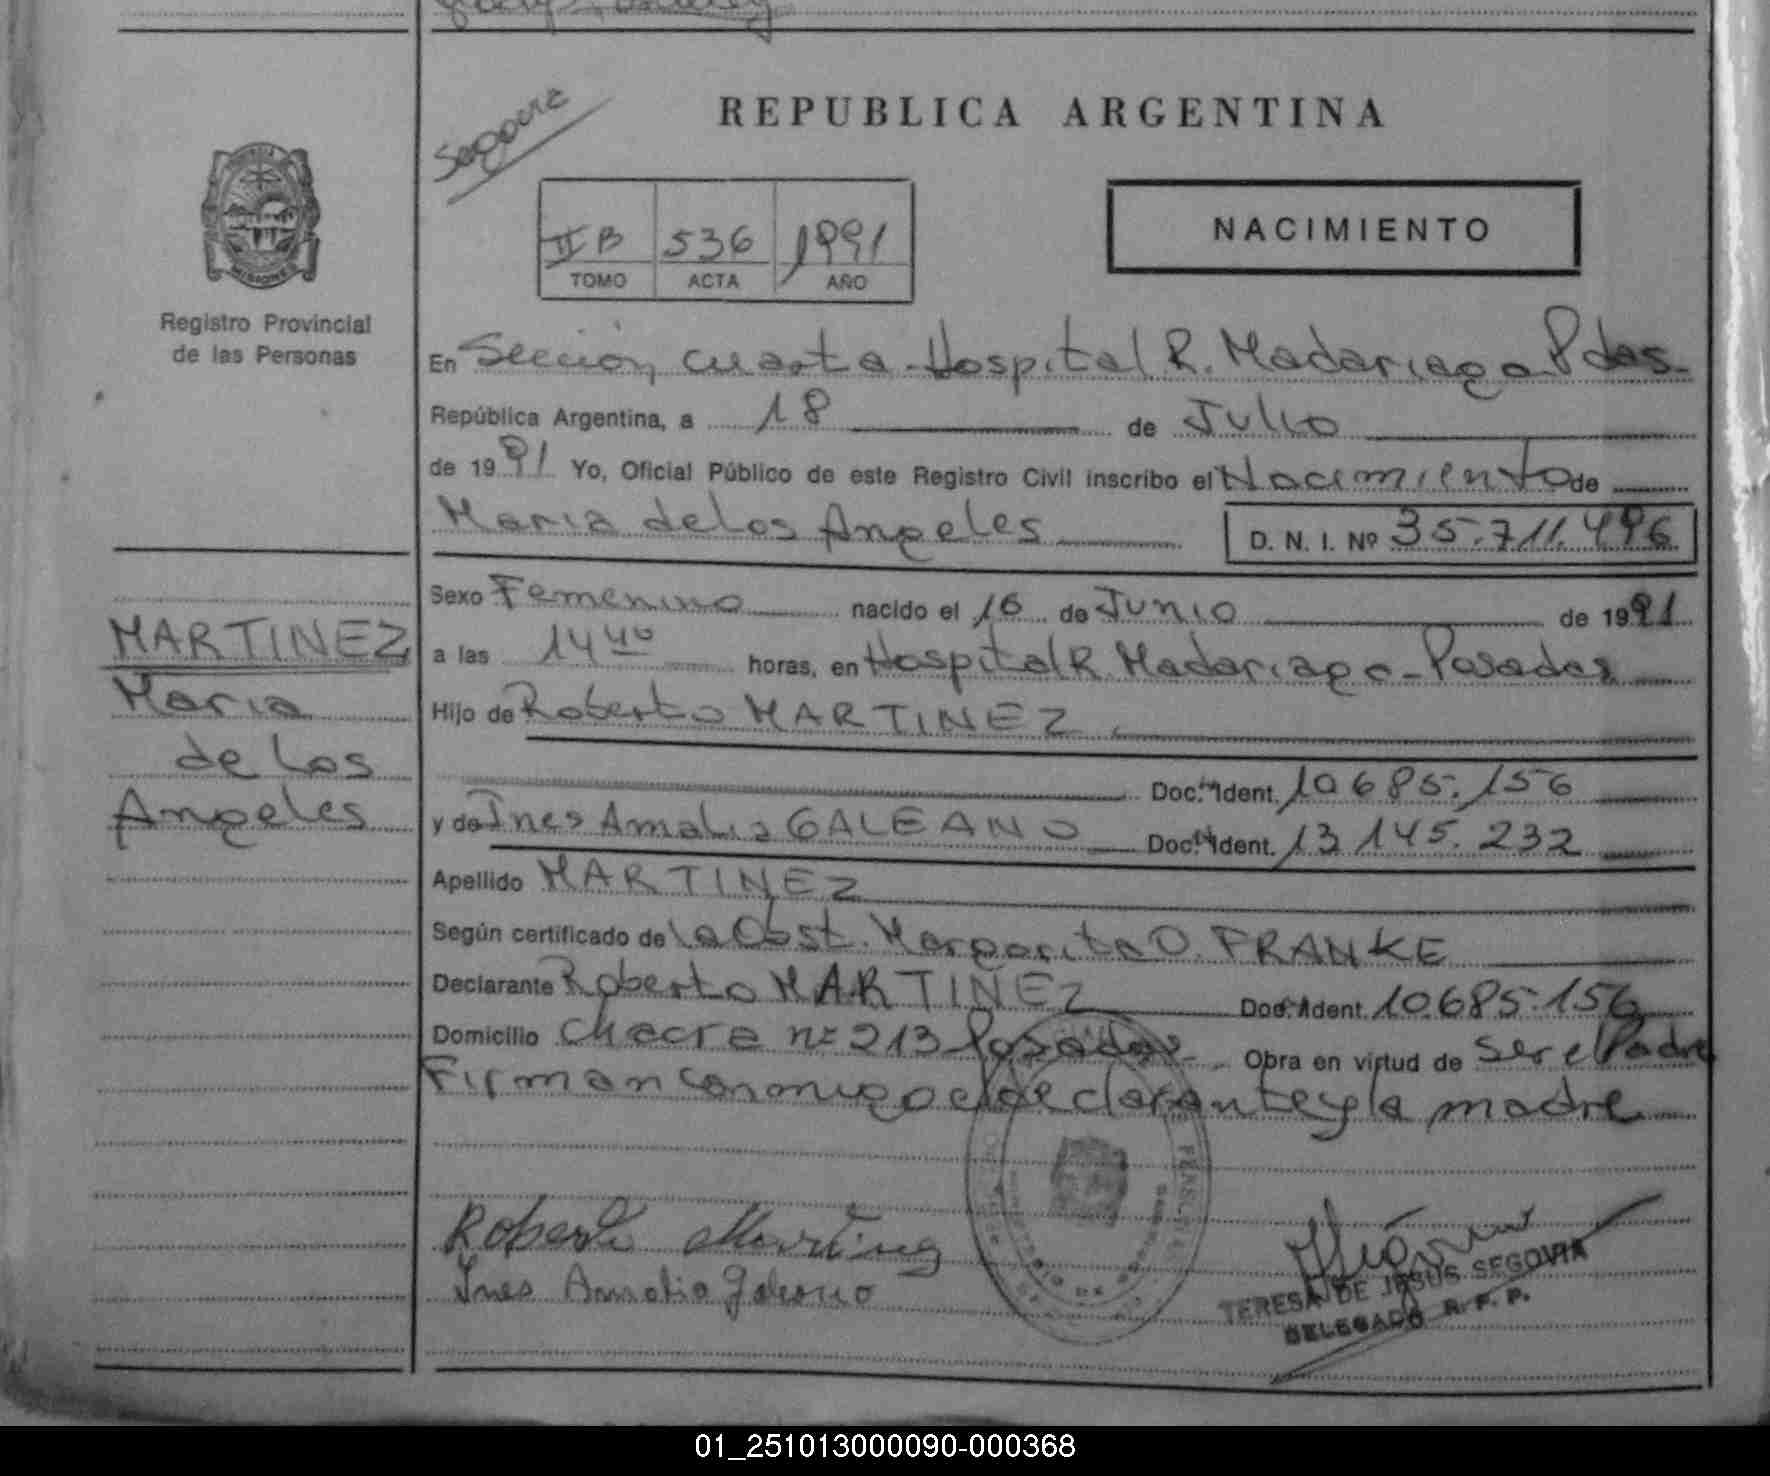 REPUBLICA ARGENTINA
II B 536 1991
TOMO ACTA AÑO
NACIMIENTO
MISIONES
Registro Provincial
de las Personas
En Sección cuarta - Hospital R. Madariaga Pdas.
República Argentina, a 18 de Julio
de 1991 Yo, Oficial Público de este Registro Civil inscribo el Nacimiento de
Maria de los Angeles D. N. I. Nº 35.711.496
MARTINEZ
Maria
de los
Angeles
Sexo Femenino nacido el 16 de Junio de 1991
a las 14 40 horas, en Hospital R. Madariaga - Posadas
Hijo de Roberto MARTINEZ
Doc. Ident. 10.685.156
y de Ines Amalia GALEANO Doc. Ident. 13.145.232
Apellido MARTINEZ
Según certificado de la Obst. Margarita O. FRANKE
Declarante Roberto MARTINEZ Doc. Ident. 10.685.156
Domicilio Chacra nº 213 Posadas Obra en virtud de ser el Padre
Firman conmigo el declarante y la madre
Roberto Martinez
Ines Amalia Galeano
TERESA DE JESUS SEGOVIA
DELEGADO R. P. P.
01_251013000090-000368